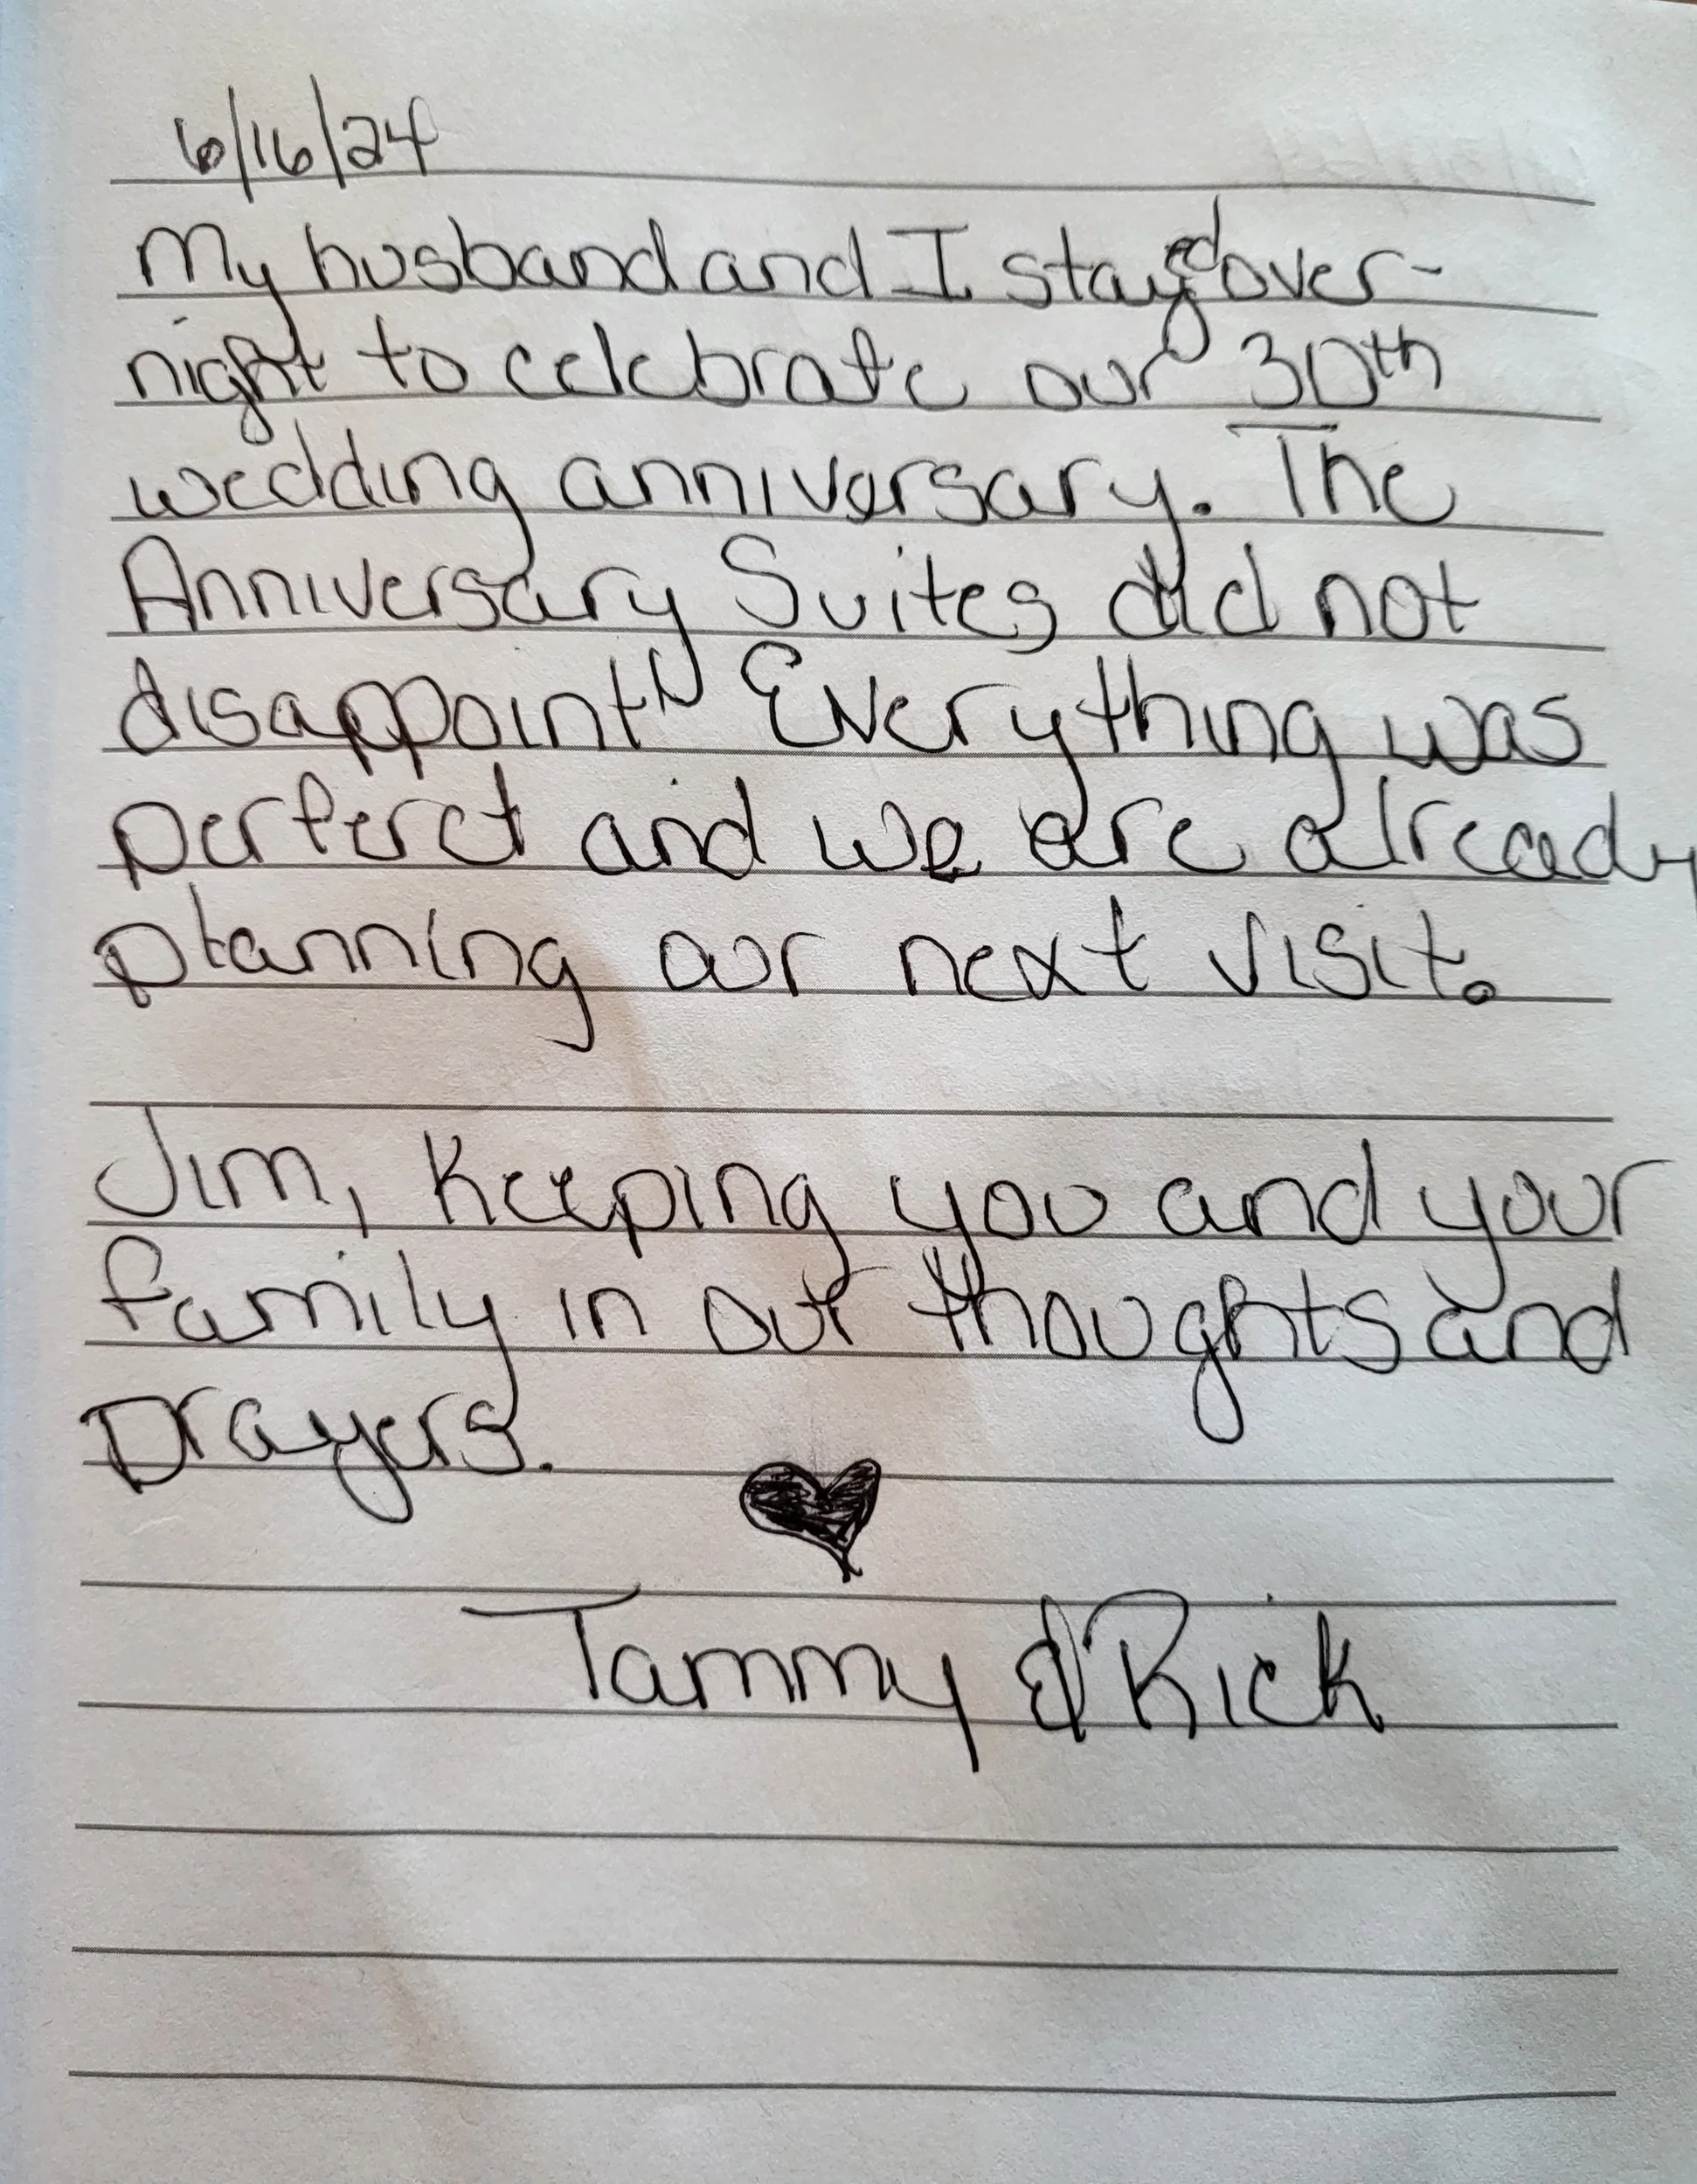 6/16/24
My husband and I stayed over-
night to celebrate our 30th
wedding anniversary. The
Anniversary Suites did not
disappoint!! Everything was
perferct and we are already
planning our next visit.
Jim, Keeping you and your
family in our thoughts and
prayers.
Tammy & Rick